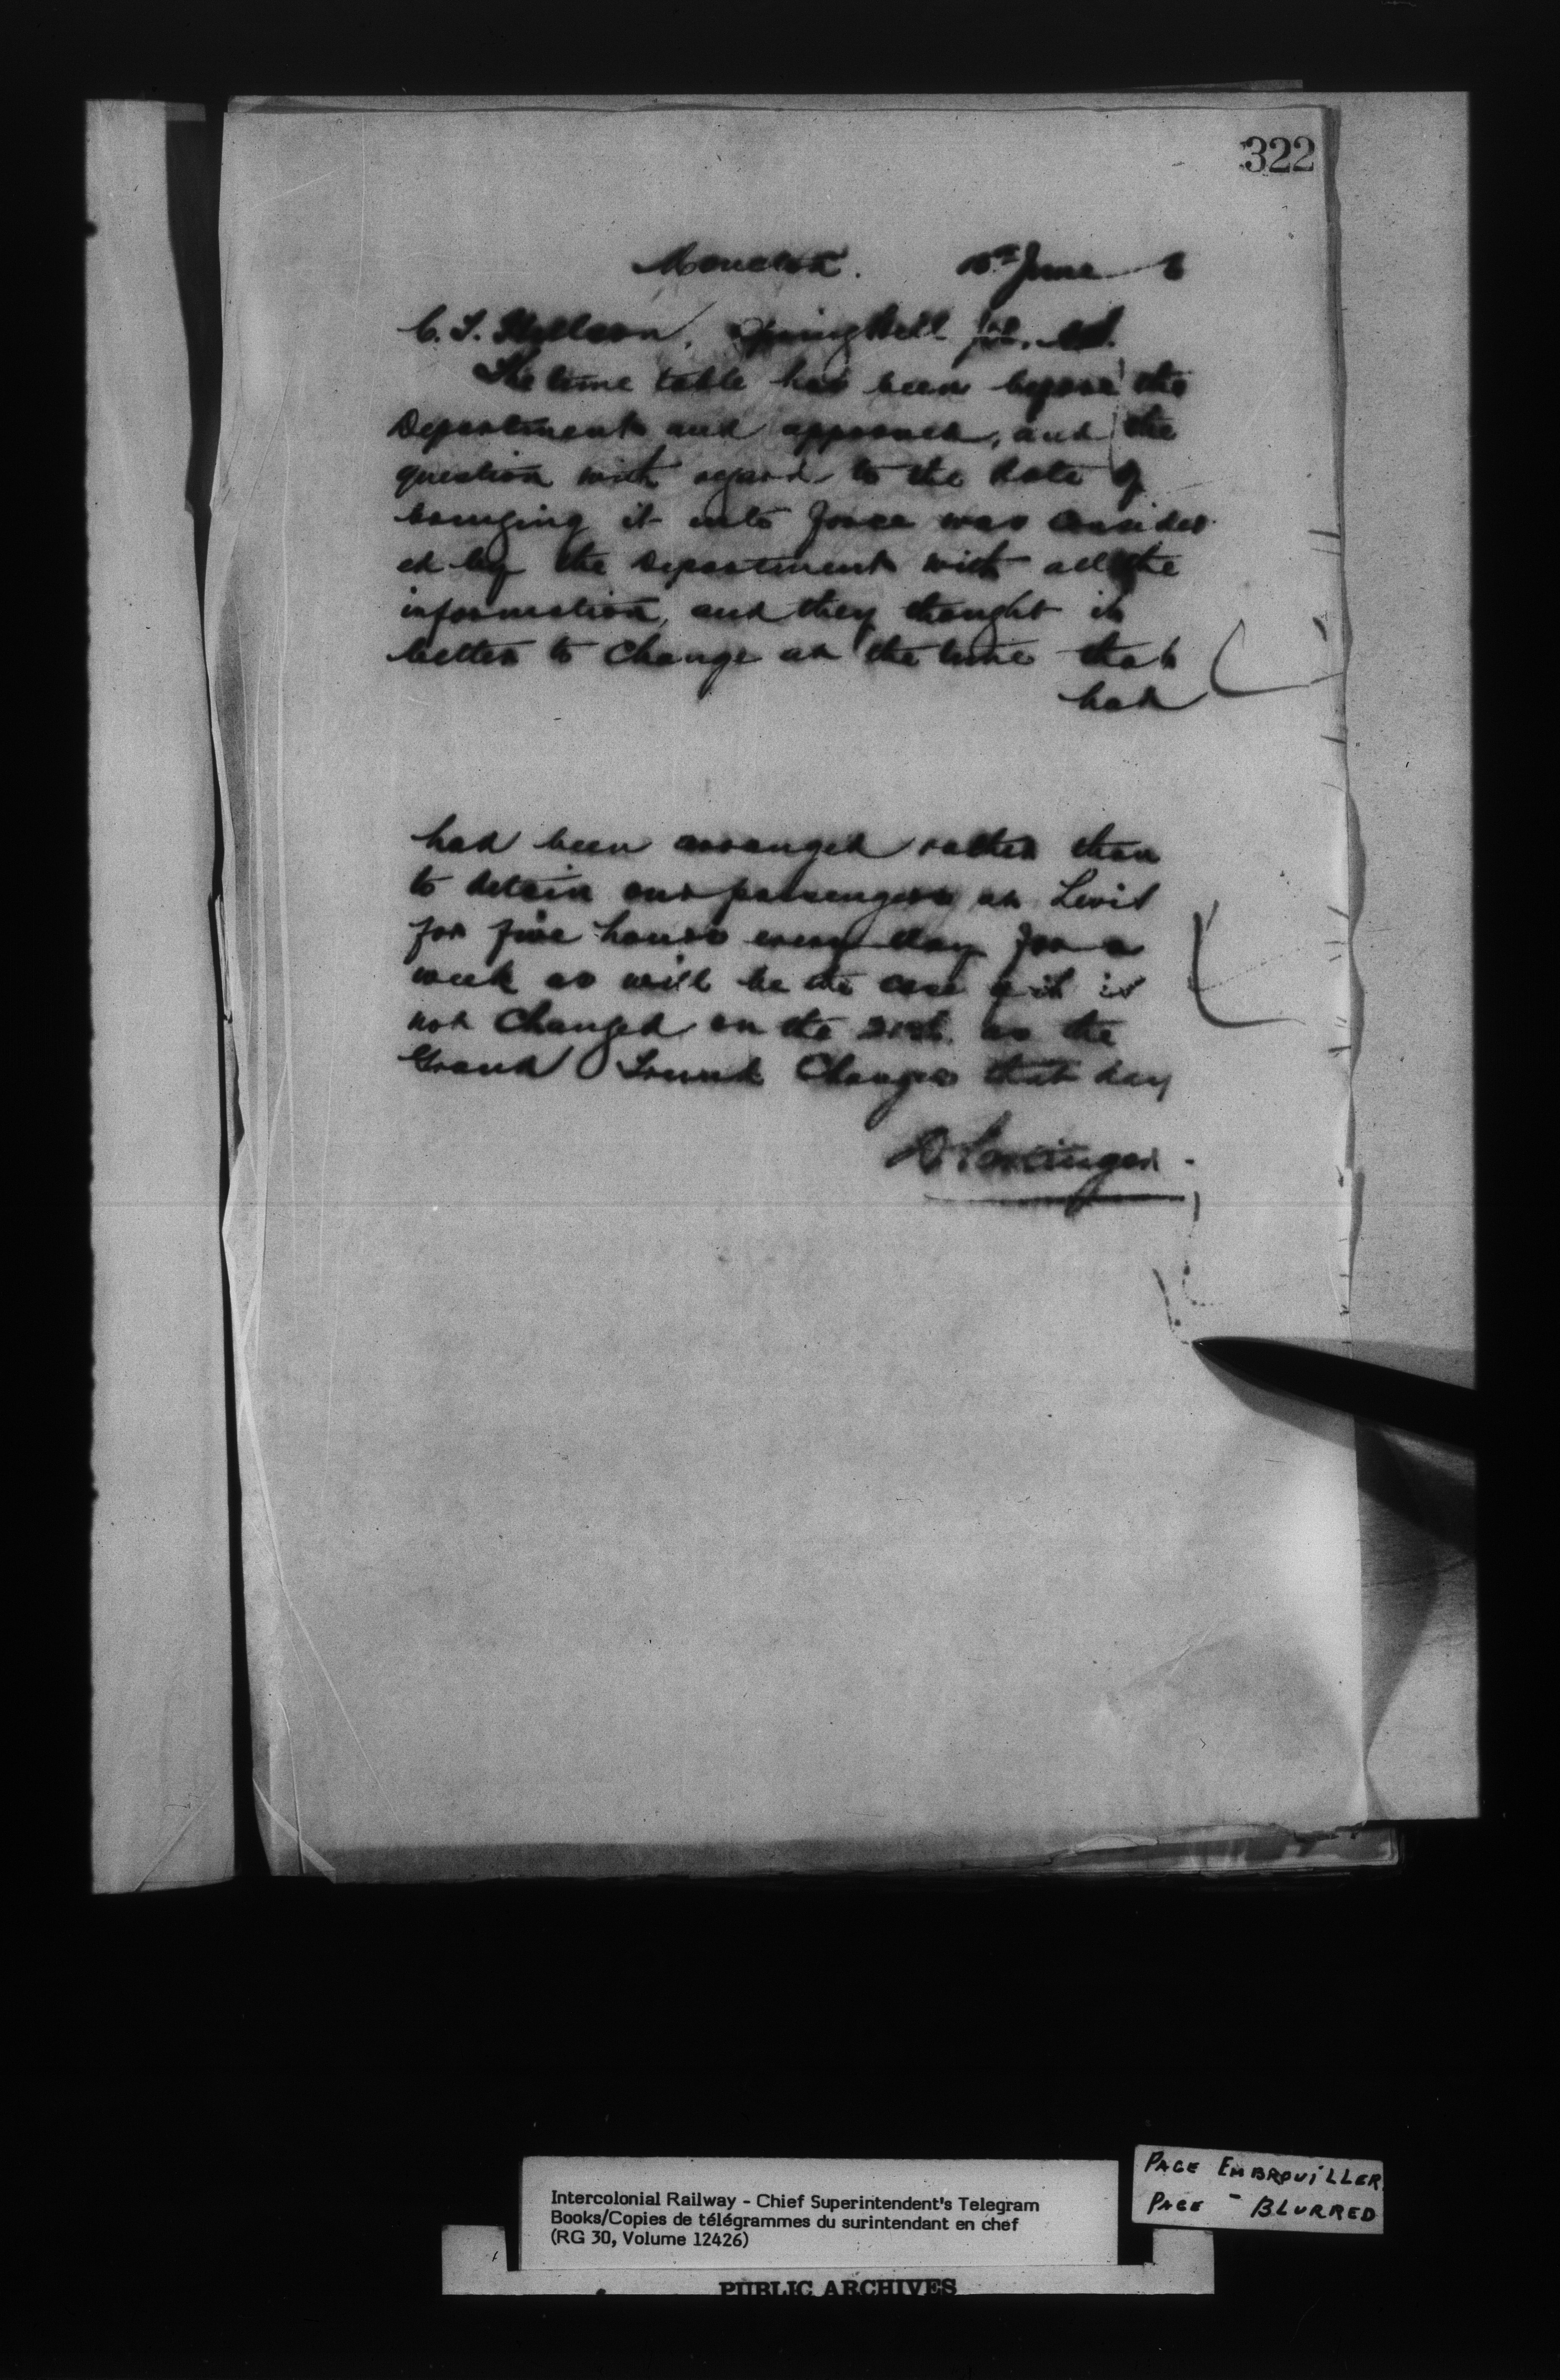 322
Moncton. 15th June 6
C. S. Hillson, Springhill Jct. N.S.
The time table has been before the
Department and approved, and the
question with regard to the date of
bringing it into force was consider
ed by the Department with all the
information, and they thought it
better to Change at the time that
had
had been arranged rather than
to detain our passengers at Levis
for five hours every day for a
week as will be the case if it is
not Changed on the 21st. as the
Grand Trunk Changes that day
D Pottinger
Intercolonial Railway - Chief Superintendent's Telegram
Books/Copies de télégrammes du surintendant en chef
(RG 30, Volume 12426)
PAGE EMBROUILLER
PAGE - BLURRED
PUBLIC ARCHIVES